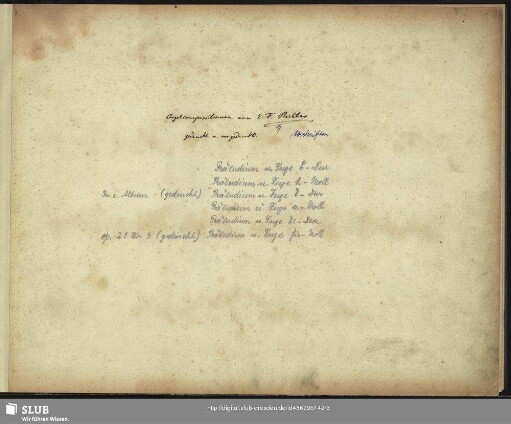 Orgelkompositionen von E. F. Richter
gedruckt u. ungedruckt. Abschriften
Präludium u. Fuge E-Dur
Präludium u. Fuge h-Moll
In e. Album (gedruckt) Präludium u. Fuge E-Dur
Präludium u. Fuge a-Moll
Präludium u. Fuge Es-Dur
op. 21 Nr. 3 (gedruckt) Präludium u. Fuge fis-Moll
SLUB
Wir führen Wissen.